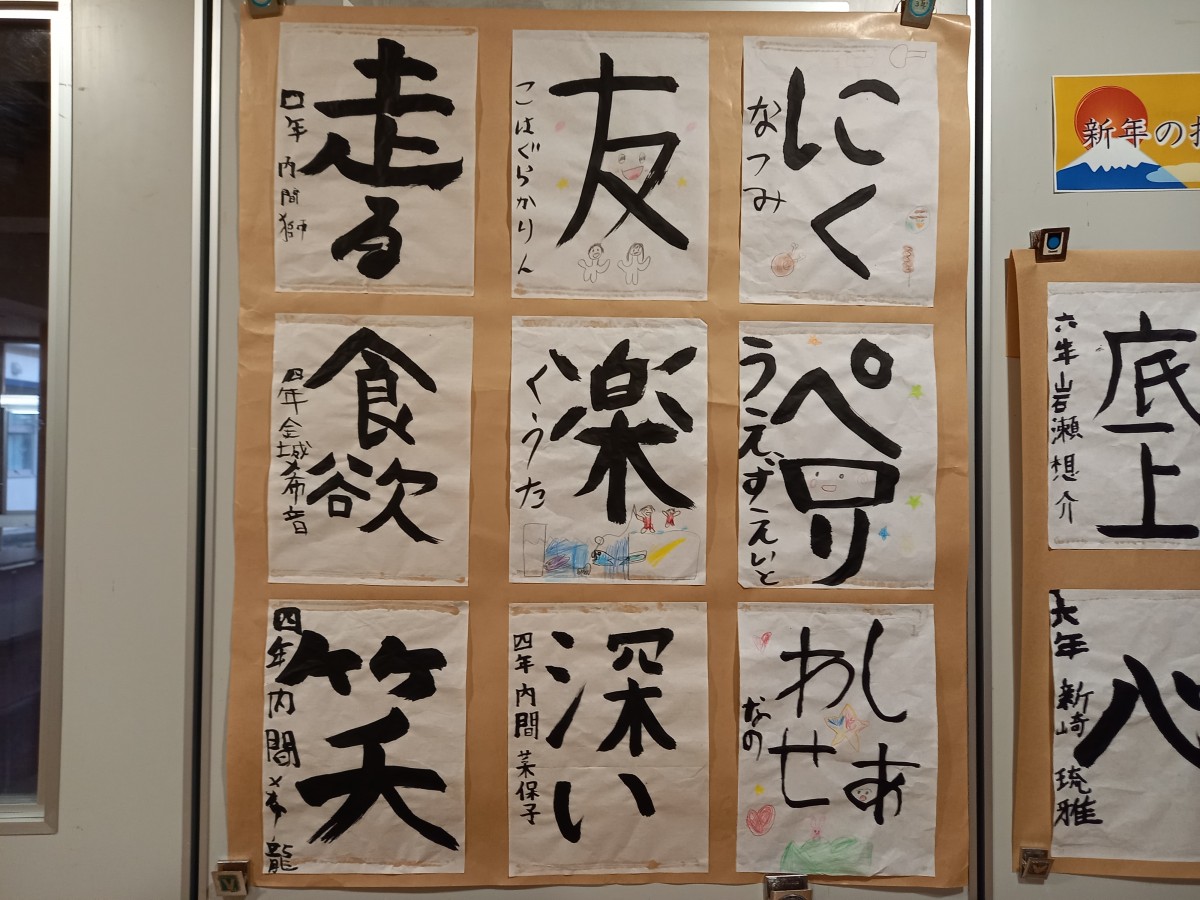 走る
四年 内間 獅
友
こはぐらかりん
にく
なつみ
食欲
四年 金城希音
楽
くうた
ペロリ
うえずえいと
笑
四年 内間
龍
深い
四年 内間 菜保子
しあ
わせ
なの
新年の
底上
六年 岩瀬 想介
心
六年 新崎 琉雅